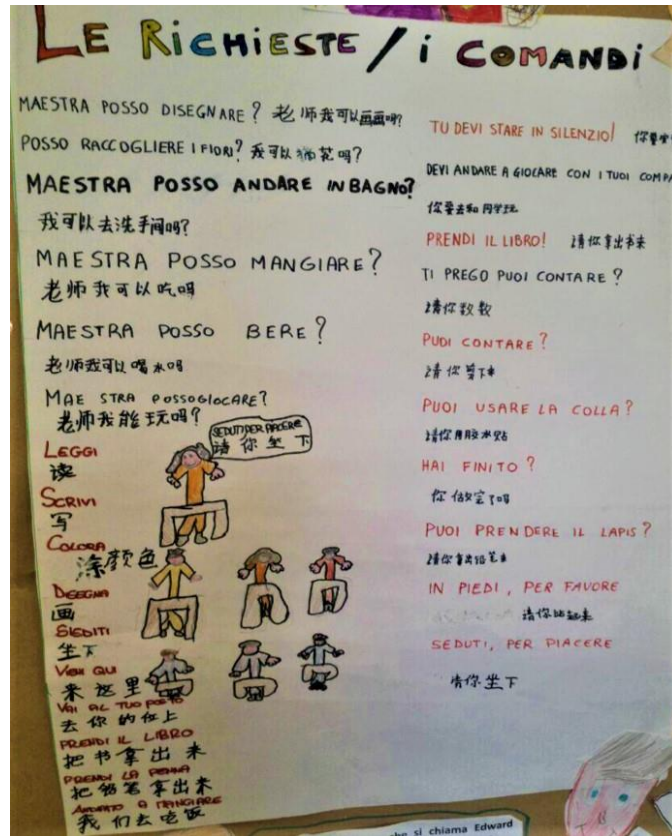 LE RICHIESTE / i COMANDI
MAESTRA POSSO DISEGNARE? 老师我可以画画吗?
POSSO RACCOGLIERE I FIORI? 我可以摘花吗?
MAESTRA POSSO ANDARE IN BAGNO?
我可以去洗手间吗?
MAESTRA POSSO MANGIARE?
老师我可以吃吗
MAESTRA POSSO BERE?
老师我可以喝水吗
MAE STRA POSSOGIOCARE?
老师我能玩吗?
SEDUTI PER PIACERE
请你坐下
LEGGI
读
SCRIVI
写
COLORA
涂颜色
DISEGNA
画
SIEDITI
坐下
VENI QUI
来这里
VAI AL TUO POSTO
去你的位上
PRENDI IL LIBRO
把书拿出来
PRENDI LA PENNA
把铅笔拿出来
ANDIAMO A MANGIARE
我们去吃饭
TU DEVI STARE IN SILENZIO! 你要
DEVI ANDARE A GIOCARE CON I TUOI COMPA
你要去和同学玩
PRENDI IL LIBRO! 请你拿出书来
TI PREGO PUOI CONTARE?
请你数数
PUOI CONTARE?
请你
PUOI USARE LA COLLA?
请你用胶水贴
HAI FINITO?
你做完了吗
PUOI PRENDERE IL LAPIS?
请你拿出铅笔来
IN PIEDI, PER FAVORE
请你站起来
SEDUTI, PER PIACERE
请你坐下
che si chiama Edward